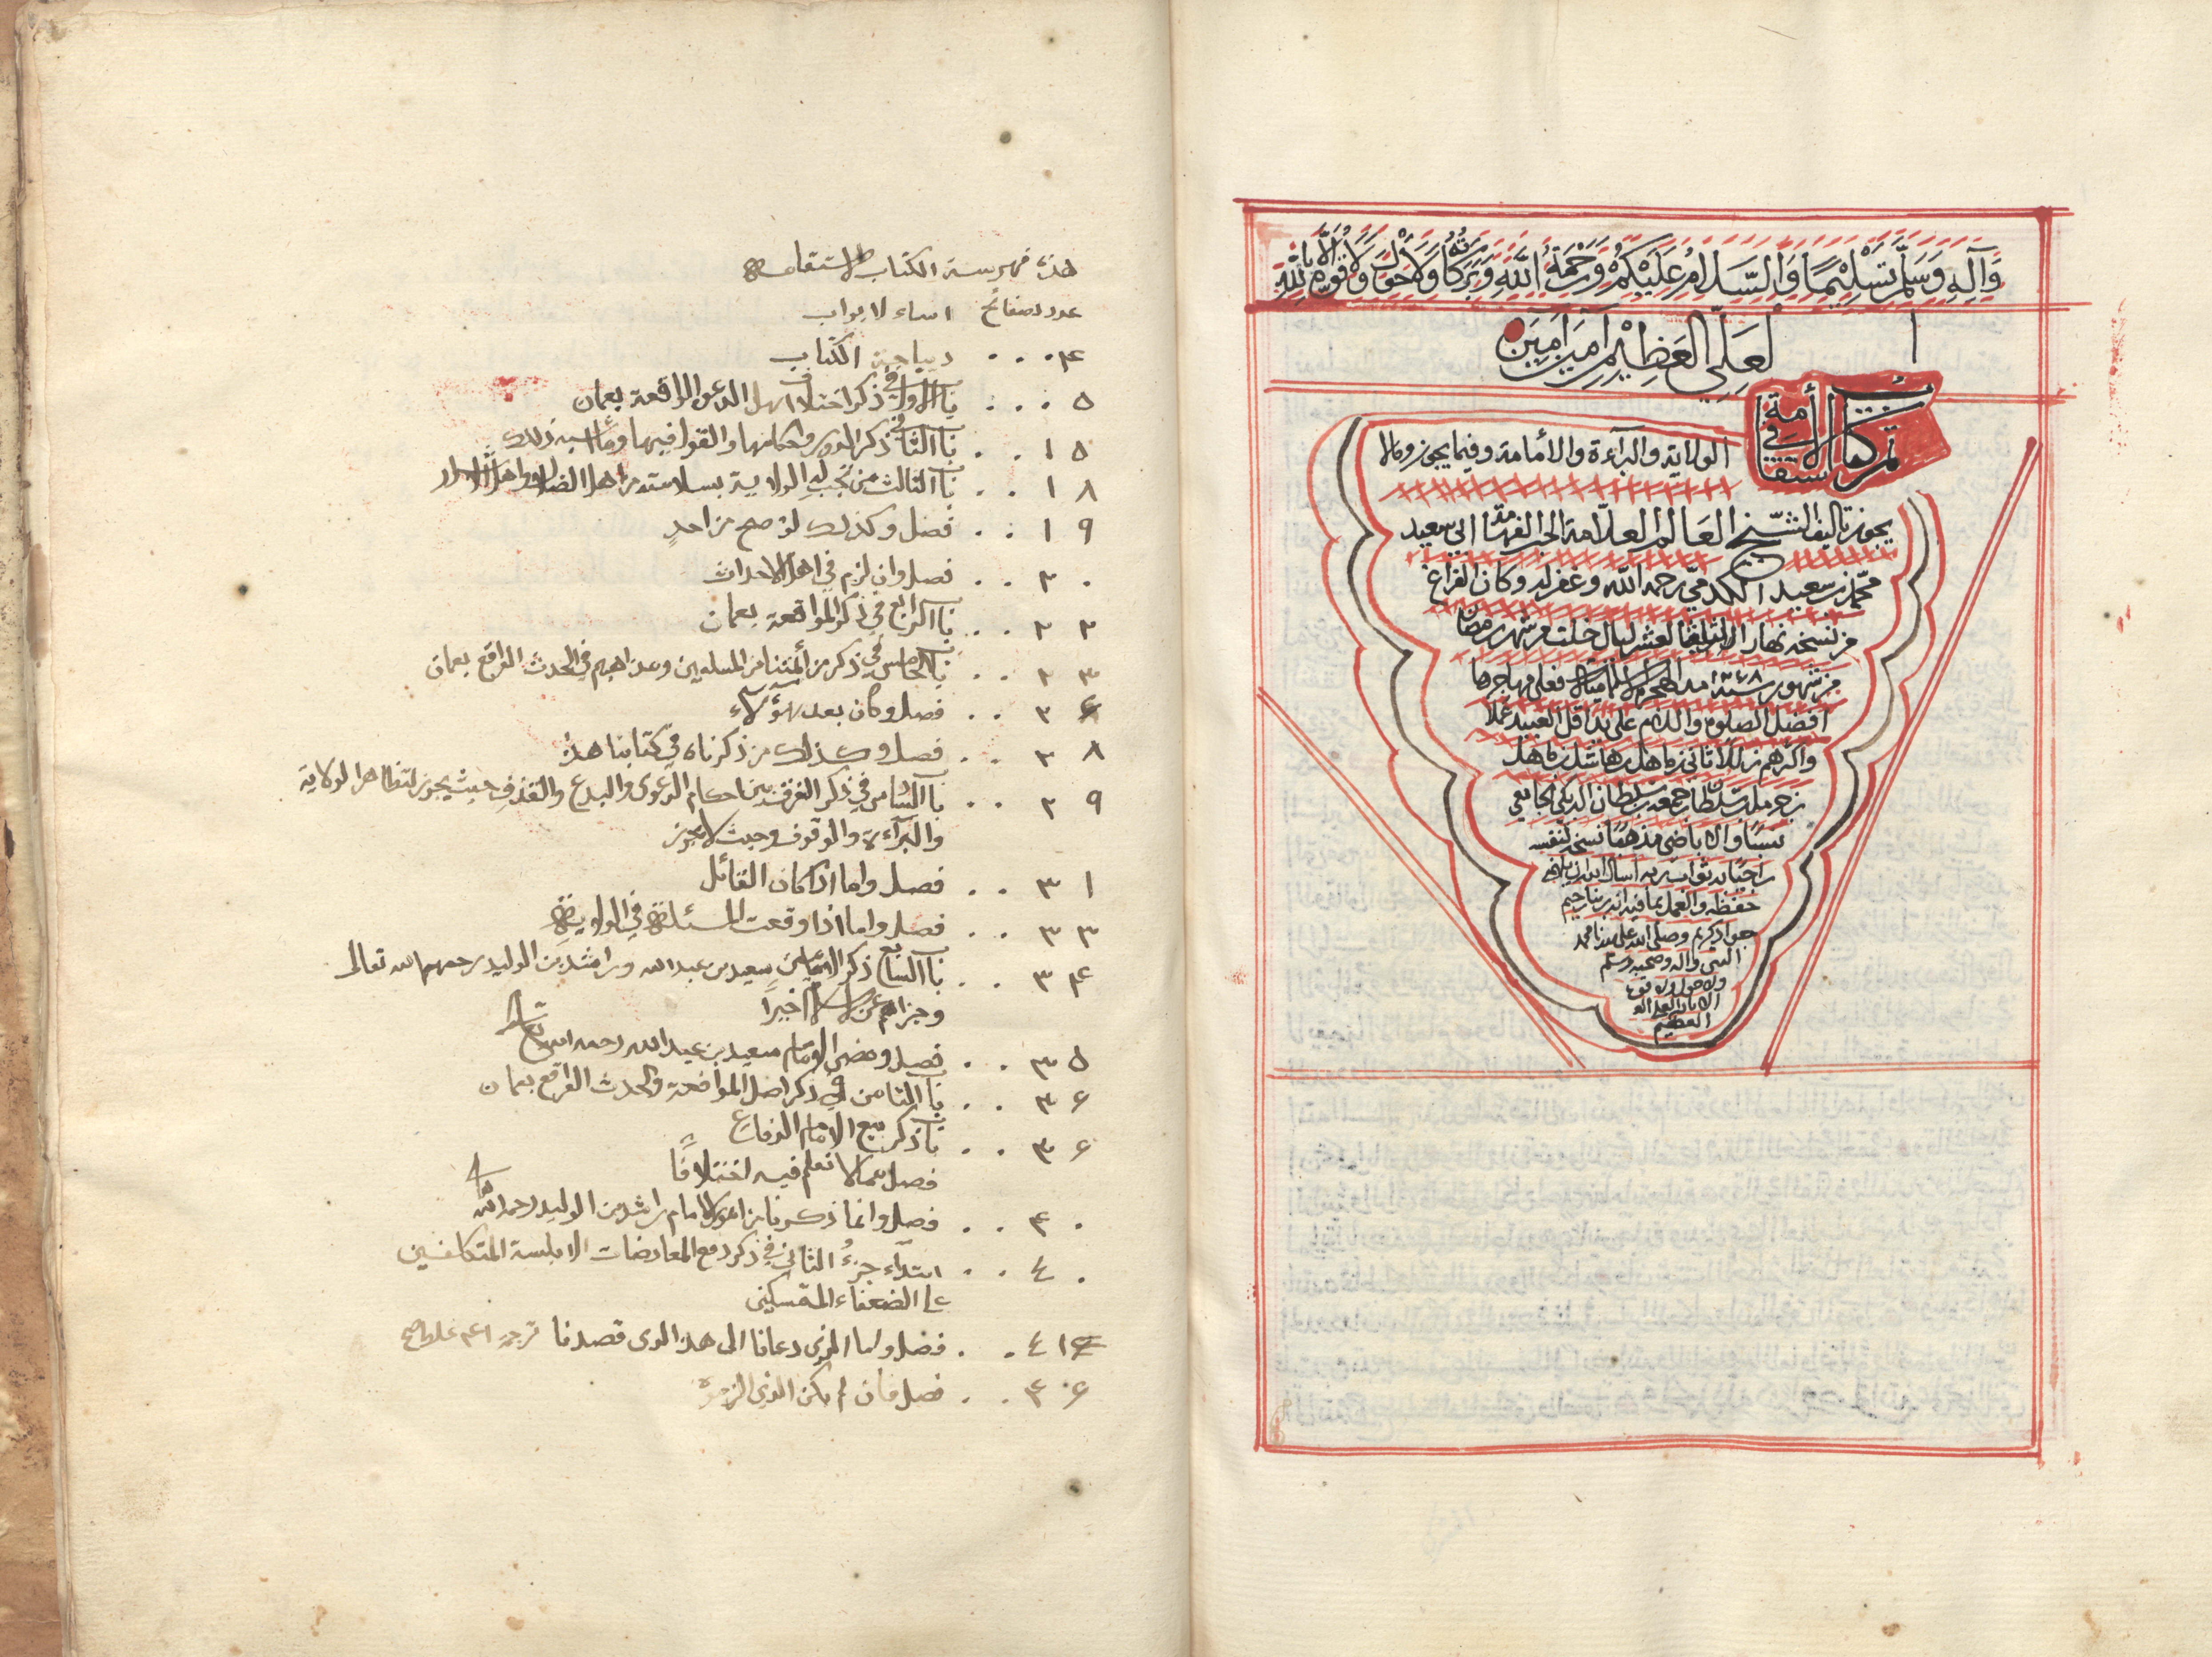 وَآلِهِ وَسَلَّمَ تَسْلِيْمًا وَالسَّلَامُ عَلَيْكُمْ وَرَحْمَةُ اللّٰهِ وَبَرَكَاتُهُ وَلَا حَوْلَ وَلَا قُوَّةَ اِلَّا بِاللّٰهِ
الْعَلِيِّ الْعَظِيْمِ آمِيْنَ آمِيْنَ
تم كتاب الاستقامة في
الولاية والبرآءة والأمامة وفيما يجوز ومالا
يجوز تاليف الشيخ العالم العلامة الحبر الفهامة ابي سعيد
محمد بن سعيد الكدمي رحمه الله وغفر له وكان الفراغ
من نسخه نهار لعشر ليال خلت من شهر رمضان
من شهور سنة فعلى مهاجرها
افضل الصلوة والسلام على يد اقل العبيد عملا
واكثرهم زللا
سلطان جمعه بن سلطان
نسبًا والاباضي مذهبًا نسخه لنفسه
راجيًا به ثواب ربه
حفظه والعمل بما فيه انه ربنا رحيم
جواد كريم وصلى الله على سيدنا محمد
النبي وآله وصحبه وسلم
ولا حول ولا قوة
الا بالله العلي
العظيم
هذه فهرسة الكتاب الاستقامه
عدد الصفائح اسماء الابواب
٤ . . . ديباجة الكتاب
٥ . . . باب الاول في ذكر اختلاف اهل الدعوة الواقعة بعمان
١٥ . . باب الثاني في ذكر الدور واحكامها والقول فيها وما اشبه ذلك
١٨ . . باب الثالث من تجب له الولاية بسلامته من اهل الضلال
١٩ . . فصل وكذلك لو صح من احدٍ
٢٠ . . فصل وان لزم في اهل الاحداث
٢٢ . . باب الرابع في ذكر الواقعة بعمان
٢٣ . . باب الخامس في ذكر من أئمتنا من المسلمين ومذاهبهم في الحدث الواقع بعمان
٢٦ . . فصل وكان بعد هؤلاء
٢٨ . . فصل وكذلك من ذكرناه في كتابنا هذا
٢٩ . . باب السادس في ذكر الفرق بين احكام الدعوى والبدع والقذف حيث يجوز لتظاهر الولاية
والبرآءة والوقوف وحيث لا يجوز
٣١ . . فصل واما اذا كان القائل
٣٣ . . فصل واما اذا وقعت المسئلة في الولاية
٣٤ . . باب السابع ذكر الامامين سعيد بن عبدالله وراشد بن الوليد رحمهما الله تعالى
وجزاهم عن الاسلام خيرًا
٣٥ . . فصل ومضى الامام سعيد بن عبدالله رحمه الله تعالى
٣٦ . . باب الثامن في ذكر اصل المواقعة والحدث الواقع بعمان
٣٦ . . باب ذكر بيع الامام الدفاع
فصل مما لا نعلم فيه اختلافًا
٤٠ . . فصل وانما ذكرنا من امور الامام راشد بن الوليد رحمه الله
٤٠ . . ابتداء جزء الثاني في ذكر دفع المعارضات الابلسة المتكلفين
على الضعفاء المتمسكين
٤١ . . فصل واما الذي دعانا الى هذا الذي قصدنا
٤٦ . . فصل فان لم يكن الذي الزمه